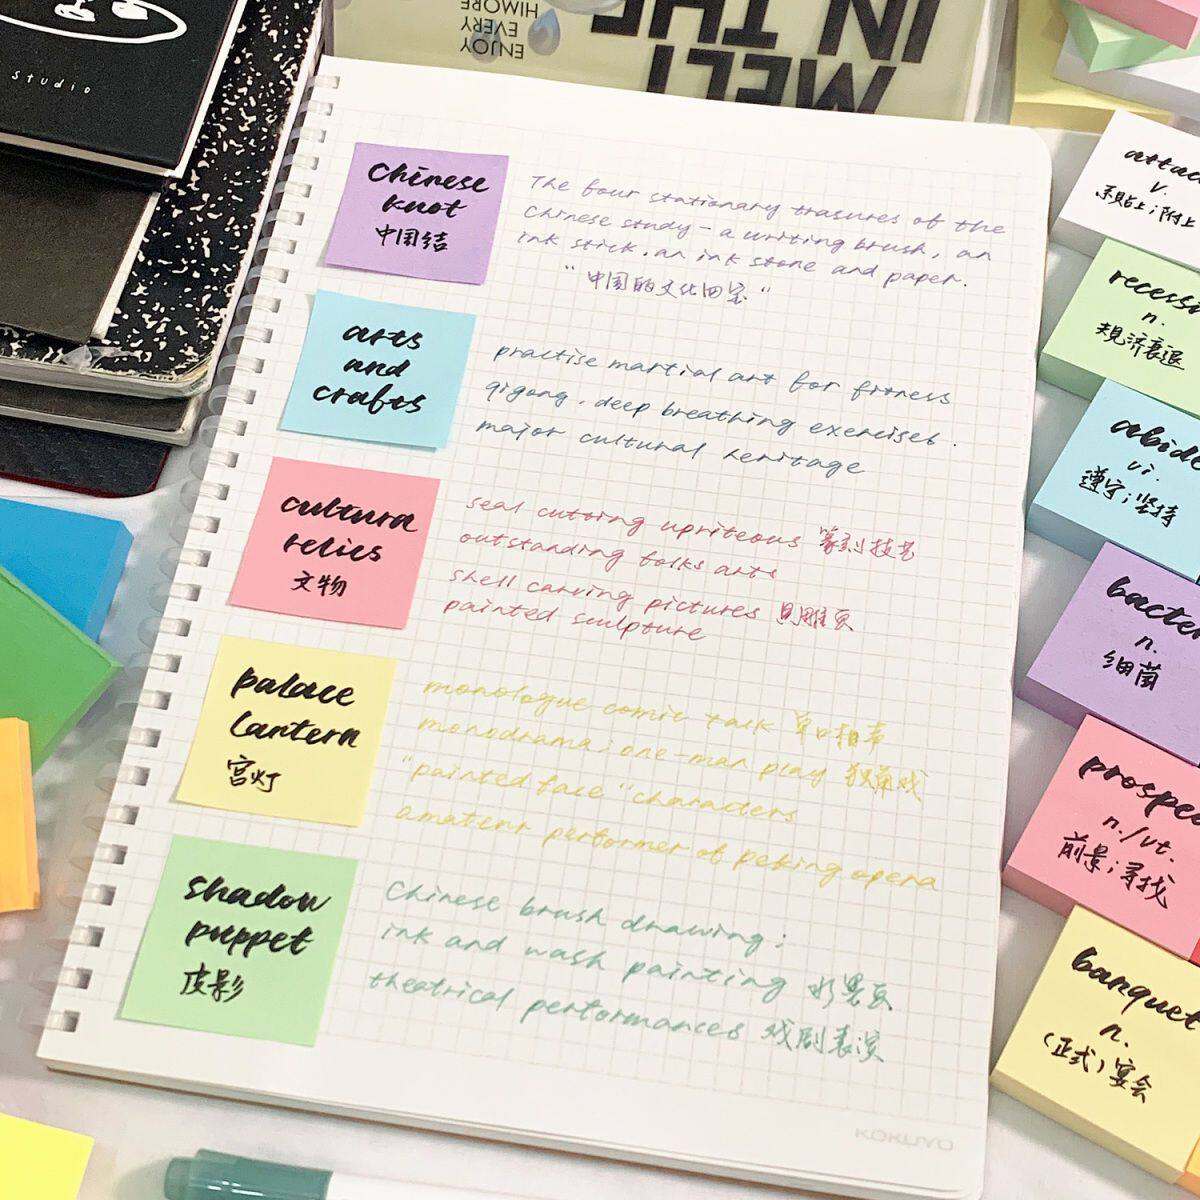 studio
ENJOY
EVERY
HIMORE
MELT
IN THE
Chinese
knot
中国结
The four stationary trasures of the
Chinese study - a writing brush, an
ink stick, an ink stone and paper.
"中国的文化四宝"
arts
and
crafts
practise martial art for fitness
qigong, deep breathing exercises.
major cultural heritage
cultura
relics
文物
seal cutting upriteous 篆刻技艺
outstanding folks arts
shell carving pictures 贝雕页
painted sculpture
palace
lantern
宫灯
monologue comic talk 单口相声
monodrama; one-man play 独角戏
"painted face" characters
amateur performer of peking opera
shadow
puppet
皮影
Chinese brush drawing:
ink and wash painting 水墨页
theatrical performances 戏剧表演
KOKUYO
attac
v.
系贴上;附上
recess
n.
经济衰退
abide
vi.
遵守;坚持
bacter
n.
细菌
prospe
n./vt.
前景;寻找
banquet
n.
(正式)宴会